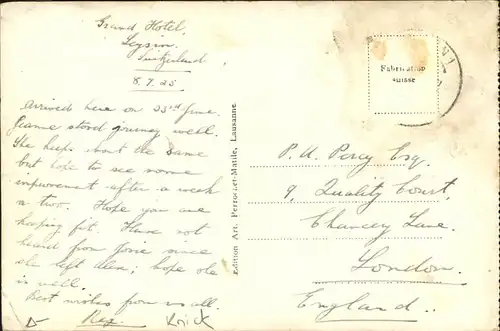 Grand Hotel,
Leysin
Switzerland
8.7.25
Arrived here on 23rd June.
Jeanne stood journey well.
She keeps about the same
but hope to see some
improvement after a week
or two. Hope you are
keeping fit. Have not
heard from since
she left; hope she
is well.
Best wishes from us all.
Rex
Edition Art. Perrochet-Matile, Lausanne.
Fabrication
suisse
P. U. Percy Esq.
9, Quality Court,
Chancey Lane.
London.
England.